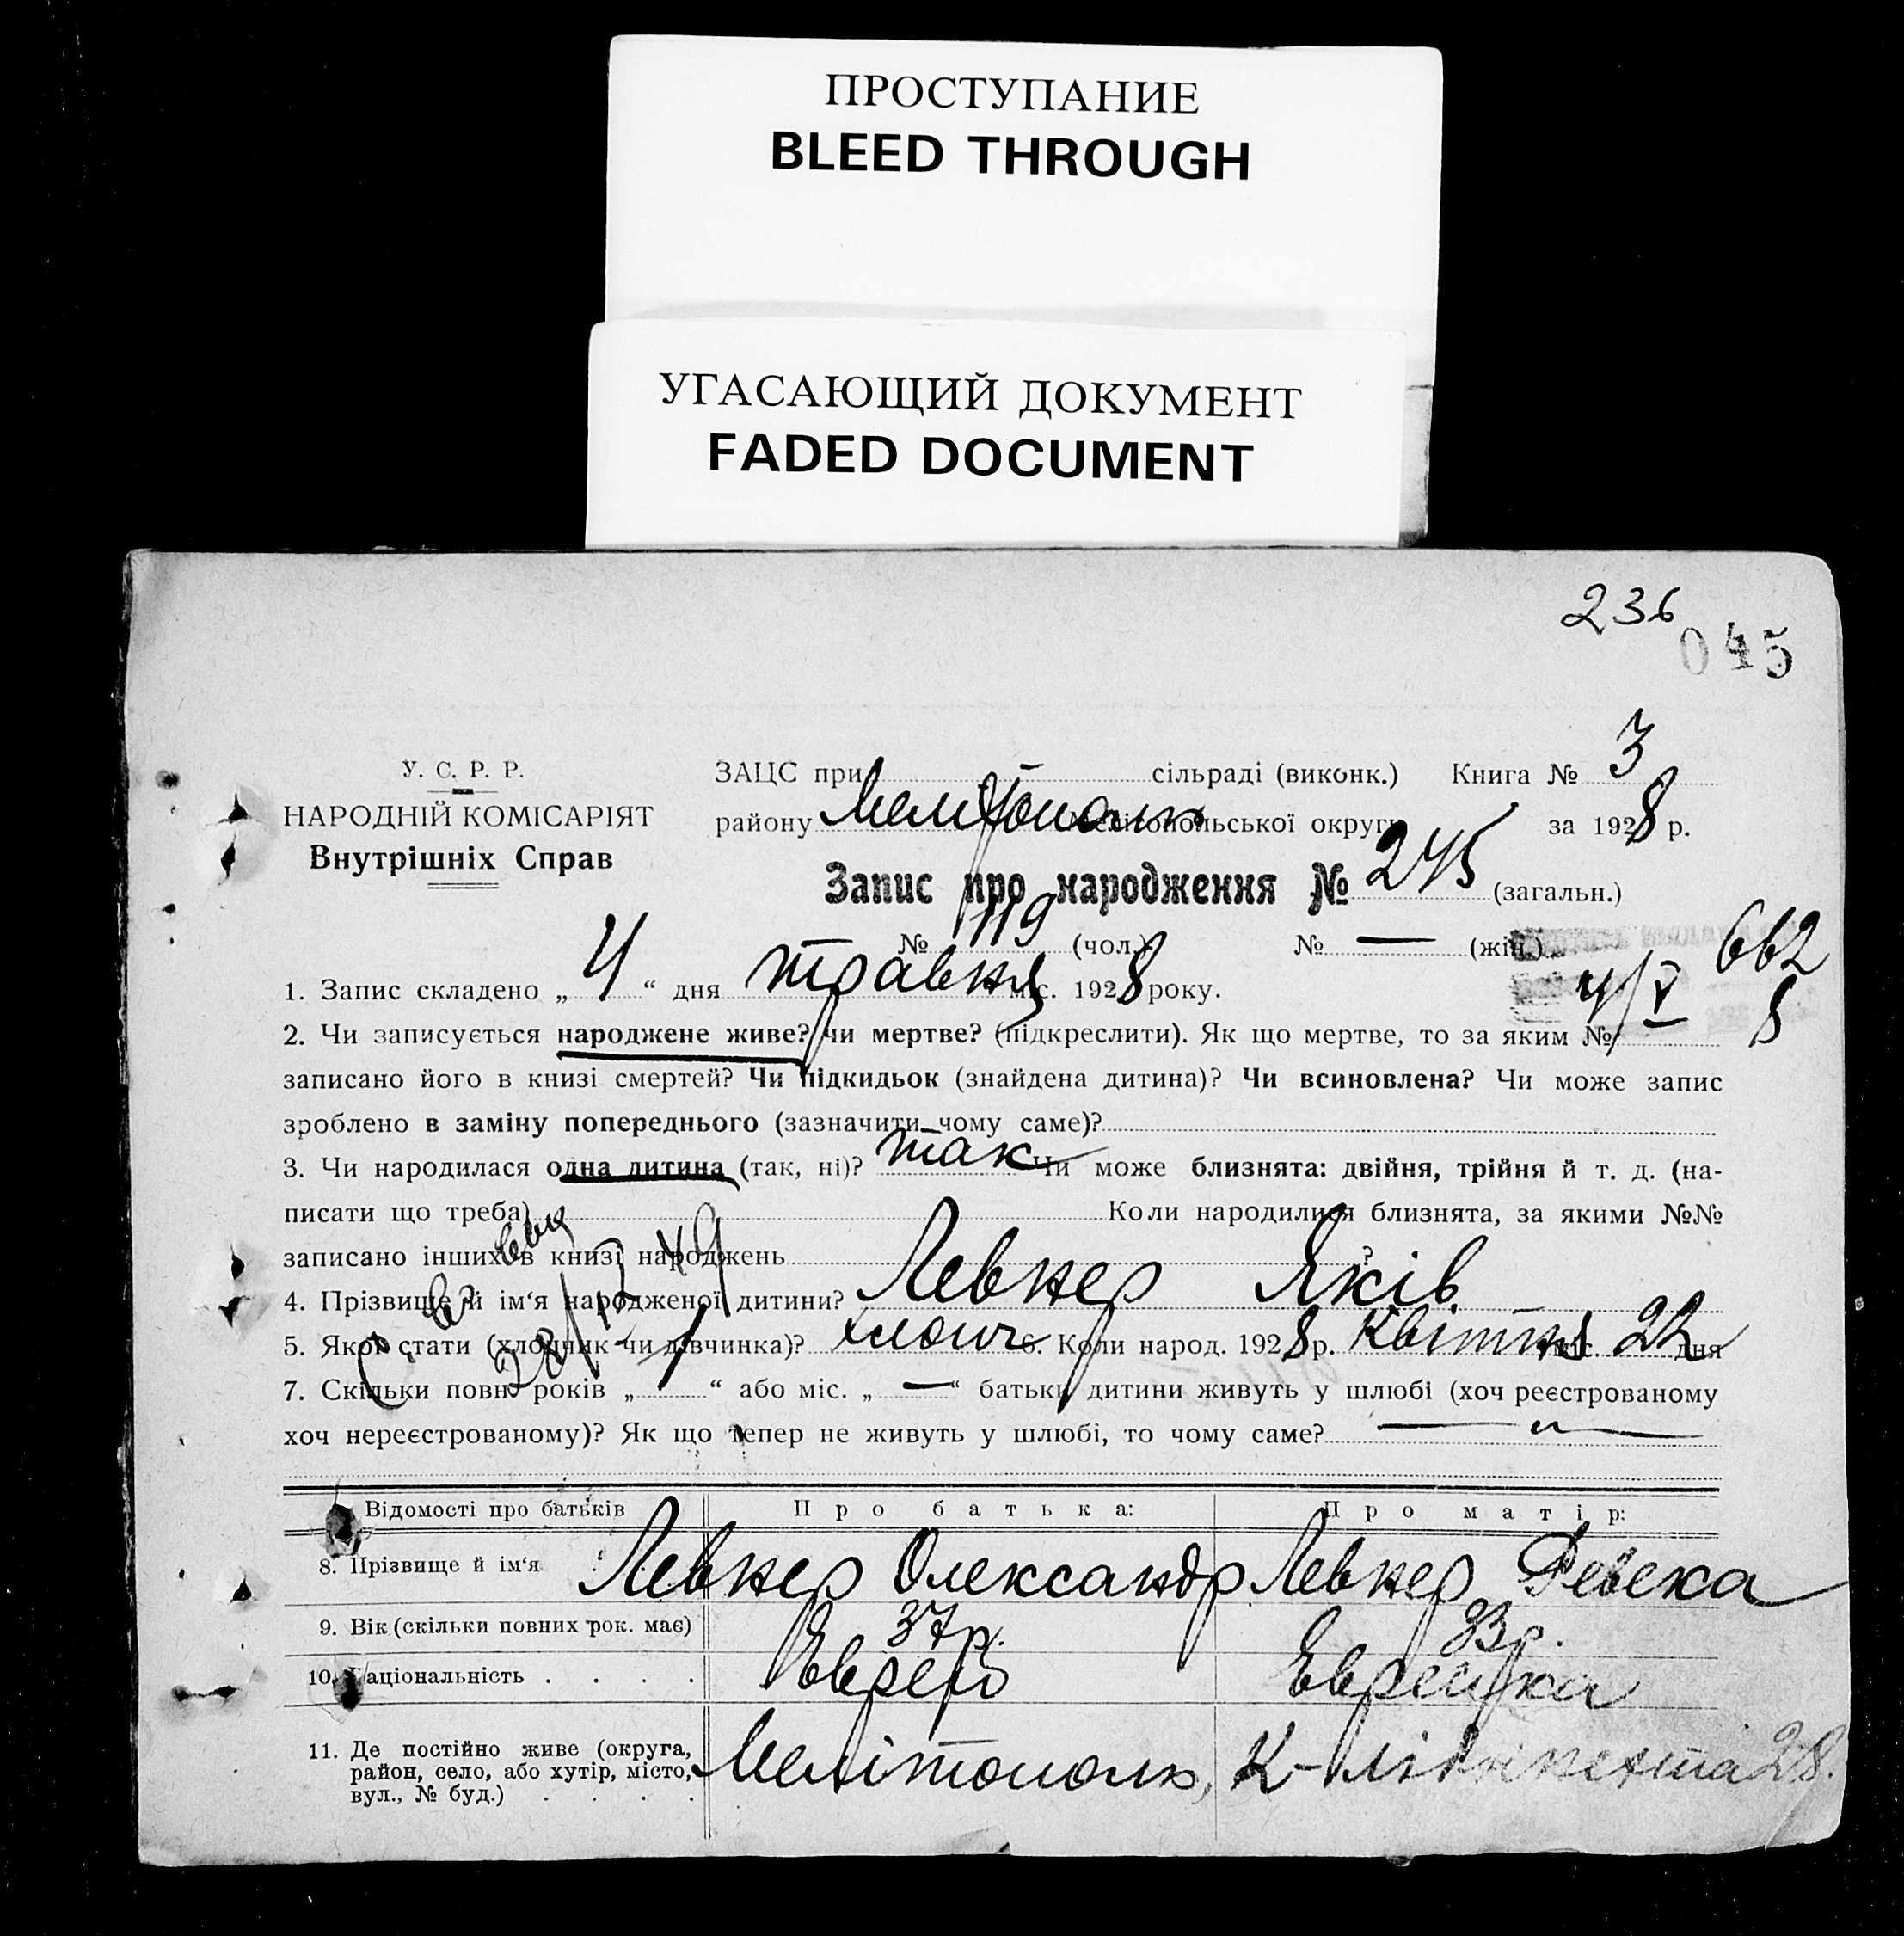 ПРОСТУПАНИЕ
BLEED THROUGH
УГАСАЮЩИЙ ДОКУМЕНТ
FADED DOCUMENT
236
045
У. С. Р. Р.
НАРОДНІЙ КОМІСАРІЯТ
Внутрішніх Справ
ЗАЦС при сільраді (виконк.) Книга № 3
району Мелітополь Мелітопольської округи за 1928 р.
Запис про народження № 245 (загальн.)
№ 119 (чол.) № — (жін.)
662
4/V 8
1. Запис складено „ 4 “ дня травня міс. 1928 року.
2. Чи записується народжене живе? чи мертве? (підкреслити). Як що мертве, то за яким №
записано його в книзі смертей? Чи підкидьок (знайдена дитина)? Чи всиновлена? Чи може запис
зроблено в заміну попереднього (зазначити чому саме)?
3. Чи народилася одна дитина (так, ні)? так Чи може близнята: двійня, трійня й т. д. (на-
писати що треба) Коли народилися близнята, за якими №№
записано інших в книзі народжень ?
4. Прізвище й ім‘я народженої дитини? Левнер Яків
5. Якої стати (хлопчик чи дівчинка)? хлопч 6. Коли народ. 1928 р. Квітня міс. 22 дня
7. Скільки повн. років „ 1 “ або міс. „ — “ батьки дитини живуть у шлюбі (хоч реєстрованому
хоч нереєстрованому)? Як що тепер не живуть у шлюбі, то чому саме?
Відомості про батьків Про батька: Про матір:
8. Прізвище й ім‘я Левнер Олександр Левнер Ревека
9. Вік (скільки повних рок. має) 37 р. 33 р.
10. Національність . . . . Еврей Еврейка
11. Де постійно живе (округа,
район, село, або хутір, місто,
вул., № буд.) . . . . Мелітополь, К-Лібкнехта 28.